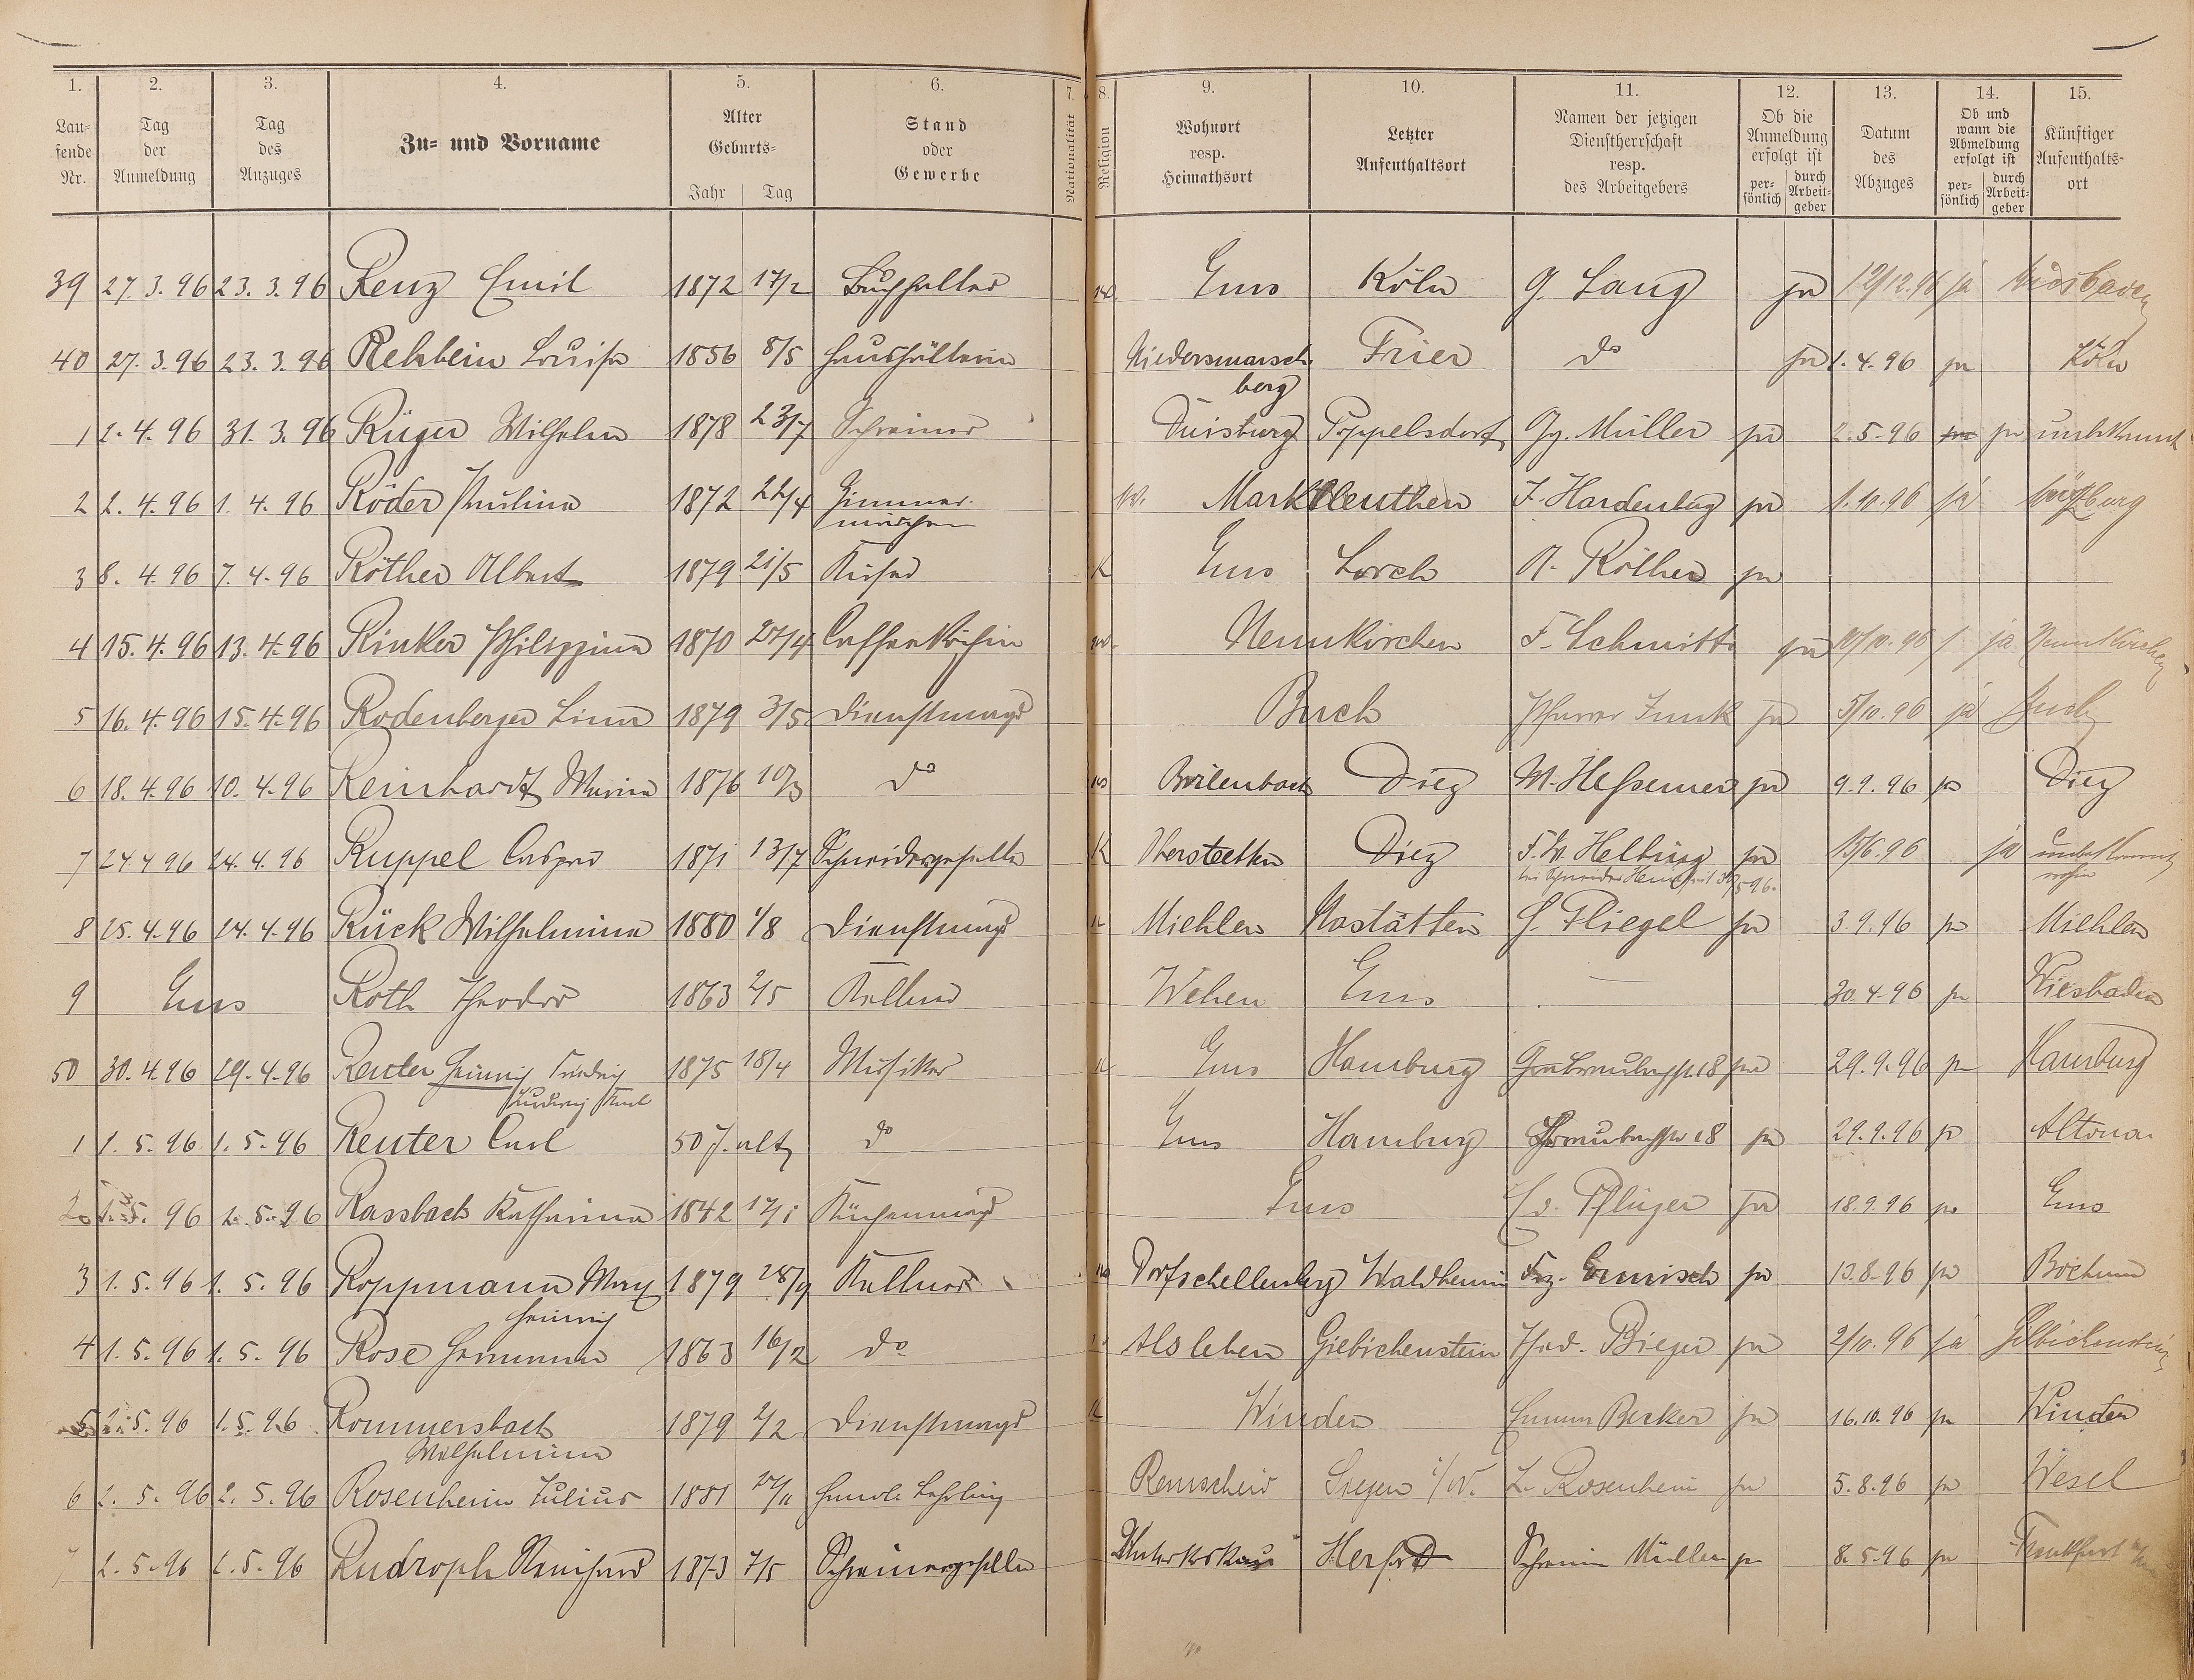 1. 2. 3. 4. 5. 6. 7. 8. 9. 10. 11. 12. 13. 14. 15.
Lau=fende Nr. Tag der Anmeldung Tag des Anzuges Zu= und Vorname Alter Geburts= Jahr Tag Stand oder Gewerbe Nationalität Religion Wohnort resp. Heimathsort Letzter Aufenthaltsort Namen der jetzigen Dienstherrschaft resp. des Arbeitgebers Ob die Anmeldung erfolgt ist per=sönlich durch Arbeit=geber Datum des Abzuges Ob und wann die Abmeldung erfolgt ist per=sönlich durch Arbeit=geber Künftiger Aufenthalts=ort
39 27.3.96 23.3.96 Renz Emil 1872 17/2 Buchhalter Ems Köln G. Lang ja 12/12.96 ja Wiesbaden
40 27.3.96 23.3.96 Rehbein Louise 1856 8/5 Haushälterin Niedersmarsch berg Trier do ja 1.4.96 ja Köln
1 2.4.96 31.3.96 Rüger Wilhelm 1878 23/7 Schreiner Duisburg Poppelsdorf Gg. Müller ja 2.5.96 ja unbekannt
2 2.4.96 1.4.96 Röder Paulina 1872 22/4 Zimmer-mädchen Marktleuthen F. Hardenberg ja 1.10.96 ja Würzburg
3 8.4.96 7.4.96 Röther Albert 1879 21/5 Küfer K Ems Lorch A. Röther ja
4 15.4.96 13.4.96 Rinker Philippina 1870 27/4 Caffeeköchin Neunkirchen F. Schmitt ja 10/10.96 ja Neunkirchen
5 16.4.96 15.4.96 Rodenberger Lina 1879 3/5 Dienstmagd Buch Pfarrer Funk ja 5/10.96 ja Buch
6 18.4.96 10.4.96 Reinhardt Maria 1876 10/3 do Diez W. Hessemer ja 9.9.96 ja Diez
7 24.4.96 24.4.96 Ruppel Caspar 1871 13/7 Schneidergeselle K Diez F. W. Helbing ja 13/6.96 ja unbekannt wohin
bei Schneider
8 25.4.96 24.4.96 Rück Wilhelmine 1880 1/8 Dienstmagd Miehlen Nastätten Fliegel ja 3.9.96 ja Miehlen
9 Ems Roth Theodor 1863 2/5 Kellner Wehen Ems — 30.4.96 ja Wiesbaden
50 30.4.96 29.4.96 Reuter Heinrich Friedrich Ludwig Karl 1875 18/4 Musiker Ems Hamburg 18 ja 29.9.96 ja Hamburg
1 1.5.96 1.5.96 Reuter Carl 50 J. alt do Ems Hamburg 18 ja 29.9.96 ja Altona
2 96 1.5.96 Rassbach Katharina 1842 17/1 Küchenmagd Ems Pflüger ja 18.9.96 ja Ems
3 1.5.96 1.5.96 Roppmann Max Heinrich 1879 28/9 Kellner Dorfschellenberg Waldheim ja 13.8.96 ja Bochum
4 1.5.96 1.5.96 Rose Hermann 1863 16/2 do Alsleben Giebichenstein Bieger ja 2/10.96 ja Giebichenstein
5 2.5.96 1.5.96 Rommersbach Wilhelmina 1879 2/2 Dienstmagd K Winden Becker ja 16.10.96 ja Winden
6 2.5.96 2.5.96 Rosenheim Julius 1881 Handl. Lehrling Remscheid Siegen i/W. L. Rosenheim ja 5.8.96 ja Wesel
7 2.5.96 2.5.96 Rudroph Reinhard 1873 7/5 Schreinergeselle Herford Schreiner Müller ja 8.5.96 ja Frankfurt